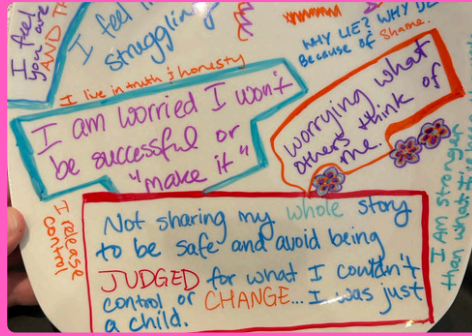 I feel
you are
AND TH
I feel li
struggling
WHY LIE? WHY
Because of Shame.
I live in truth & honesty
I am worried I won't
be successful or
"make it"
worrying what
others think of
me.
I release
control
Not sharing my whole story
to be safe and avoid being
JUDGED for what I couldn't
control or CHANGE... I was just
a child.
I AM stronger
than what